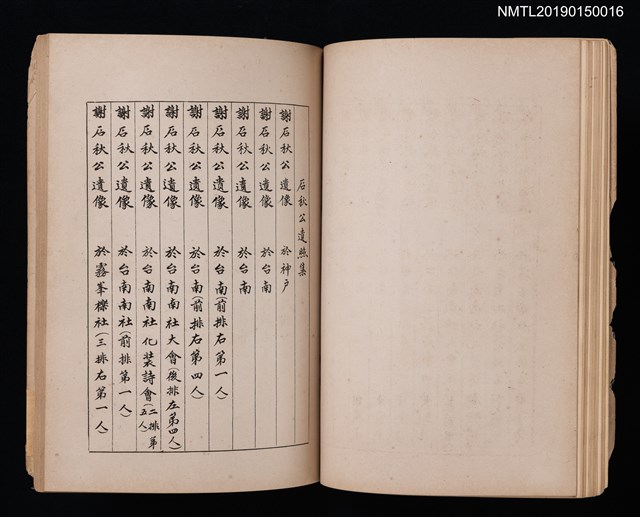 NMTL20190150016
石秋公遺照集
謝石秋公遺像 於神戶
謝石秋公遺像 於台南
謝石秋公遺像 於台南
謝石秋公遺像 於台南(前排右第一人)
謝石秋公遺像 於台南(前排右第四人)
謝石秋公遺像 於台南南社大會(後排左第四人)
謝石秋公遺像 於台南南社化裝詩會(二排第五人)
謝石秋公遺像 於台南南社(前排第一人)
謝石秋公遺像 於霧峯櫟社(三排右第一人)